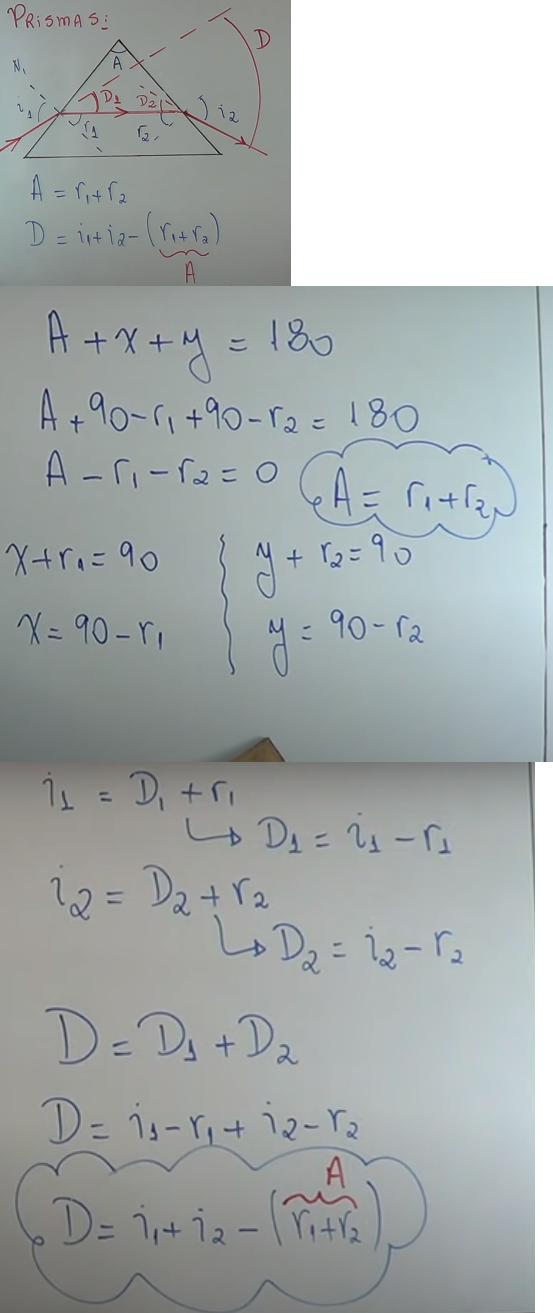 PRISMAS:
A
D
N₁
D₁
D₂
i₁
i₂
r₁
r₂
A = r₁+r₂
D = i₁+i₂-(r₁+r₂)
A
A + x + y = 180
A + 90-r₁ + 90-r₂ = 180
A - r₁ - r₂ = 0
A = r₁+r₂
x+r₁=90
y + r₂=90
x= 90-r₁
y = 90-r₂
i₁ = D₁ + r₁
↳ D₁ = i₁ - r₁
i₂ = D₂ + r₂
↳ D₂ = i₂ - r₂
D = D₁ + D₂
D = i₁-r₁ + i₂-r₂
A
D = i₁+i₂ - (r₁+r₂)